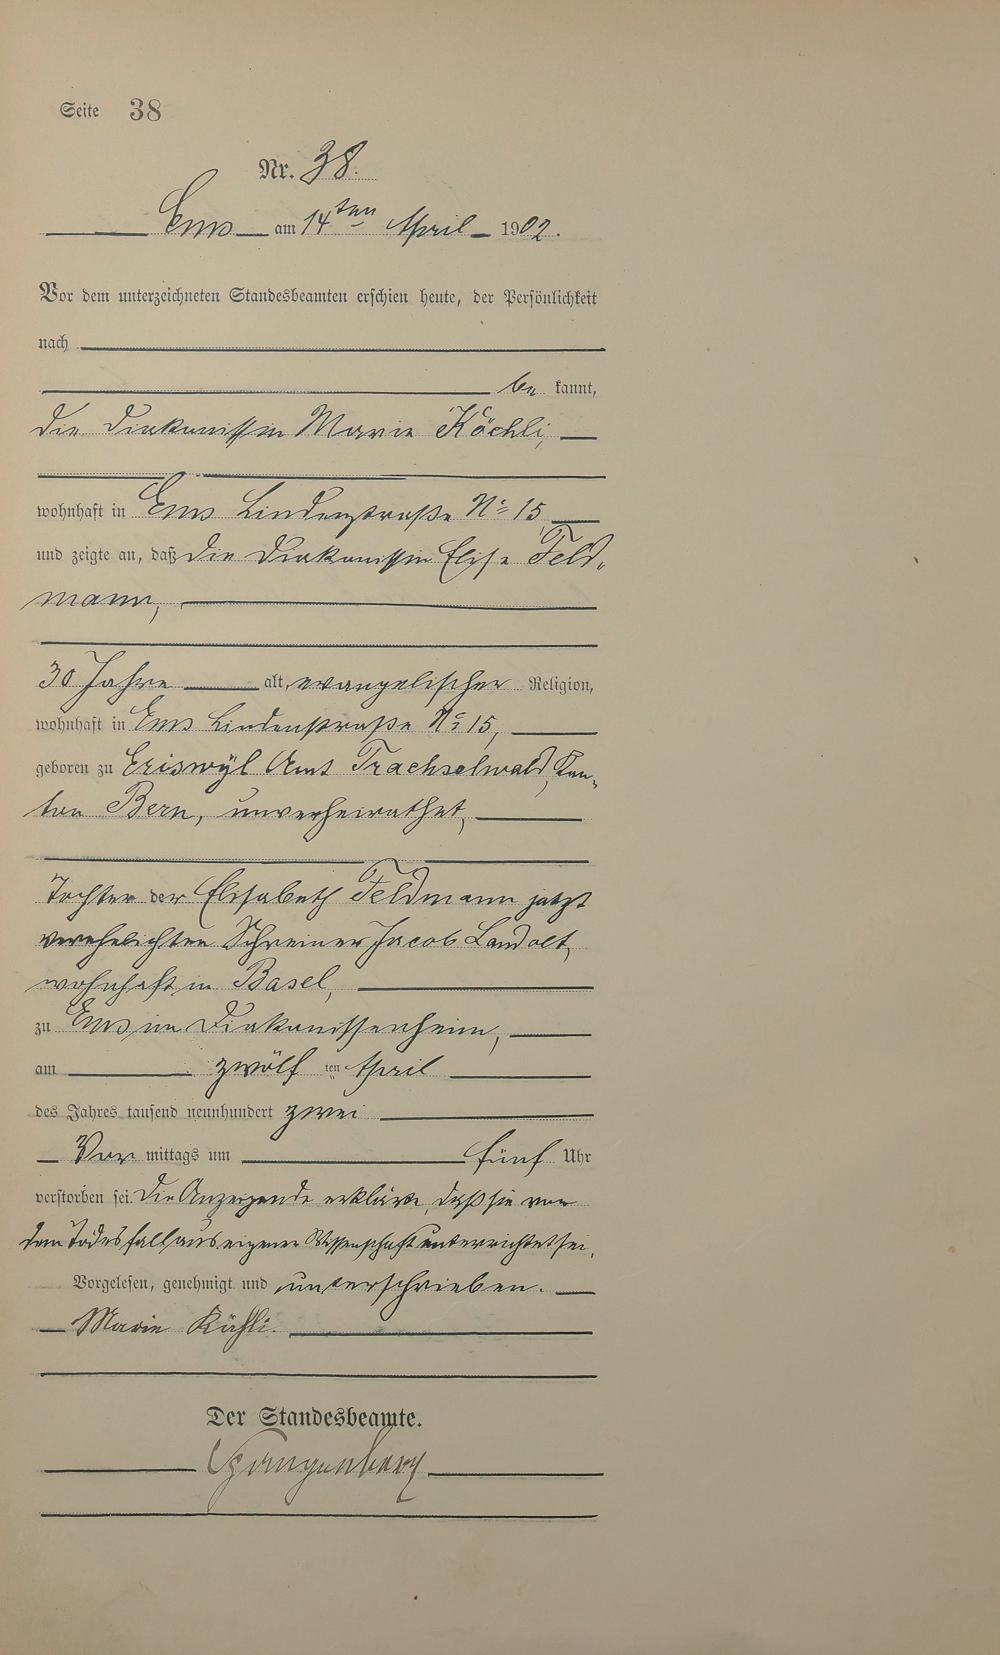 Seite 38
Nr. 38.
Ems am 14ten April 1902.
Vor dem unterzeichneten Standesbeamten erschien heute, der Persönlichkeit
nach
be kannt,
die Diakonissin Marie Köchli,
wohnhaft in Ems Lindenstraße No 15
und zeigte an, daß die Diakonissin Elise Feld-
mann,
30 Jahre alt, evangelischer Religion,
wohnhaft in Ems Lindenstraße No 15,
geboren zu Eriswyl Amt Trachselwald, Kan-
ton Bern, unverheirathet,
Tochter der Elisabeth Feldmann jetzt
verehelichten Schreiner Jacob Landolt,
wohnhaft in Basel,
zu Ems im Diakonissenheim,
am zwölf ten April
des Jahres tausend neunhundert zwei
Vor mittags um fünf Uhr
verstorben sei. Die Anzeigende erklärte, daß sie von
dem Todesfall aus eigener Wissenschaft unterrichtet sei.
Vorgelesen, genehmigt und unterschrieben.
Marie Köchli.
Der Standesbeamte.